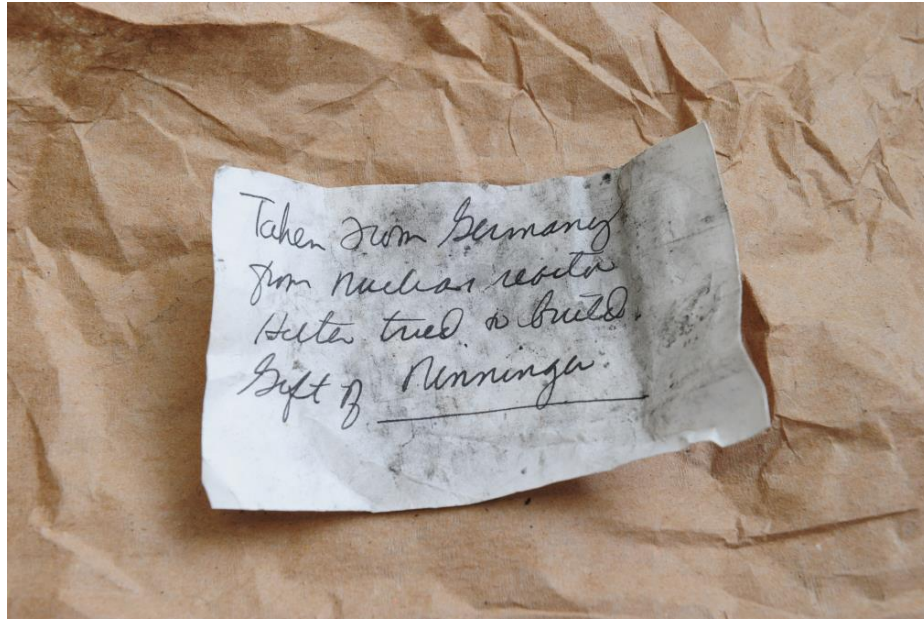 Taken from Germany
from nuclear reactor
Hitler tried to build.
Gift of Ninninger